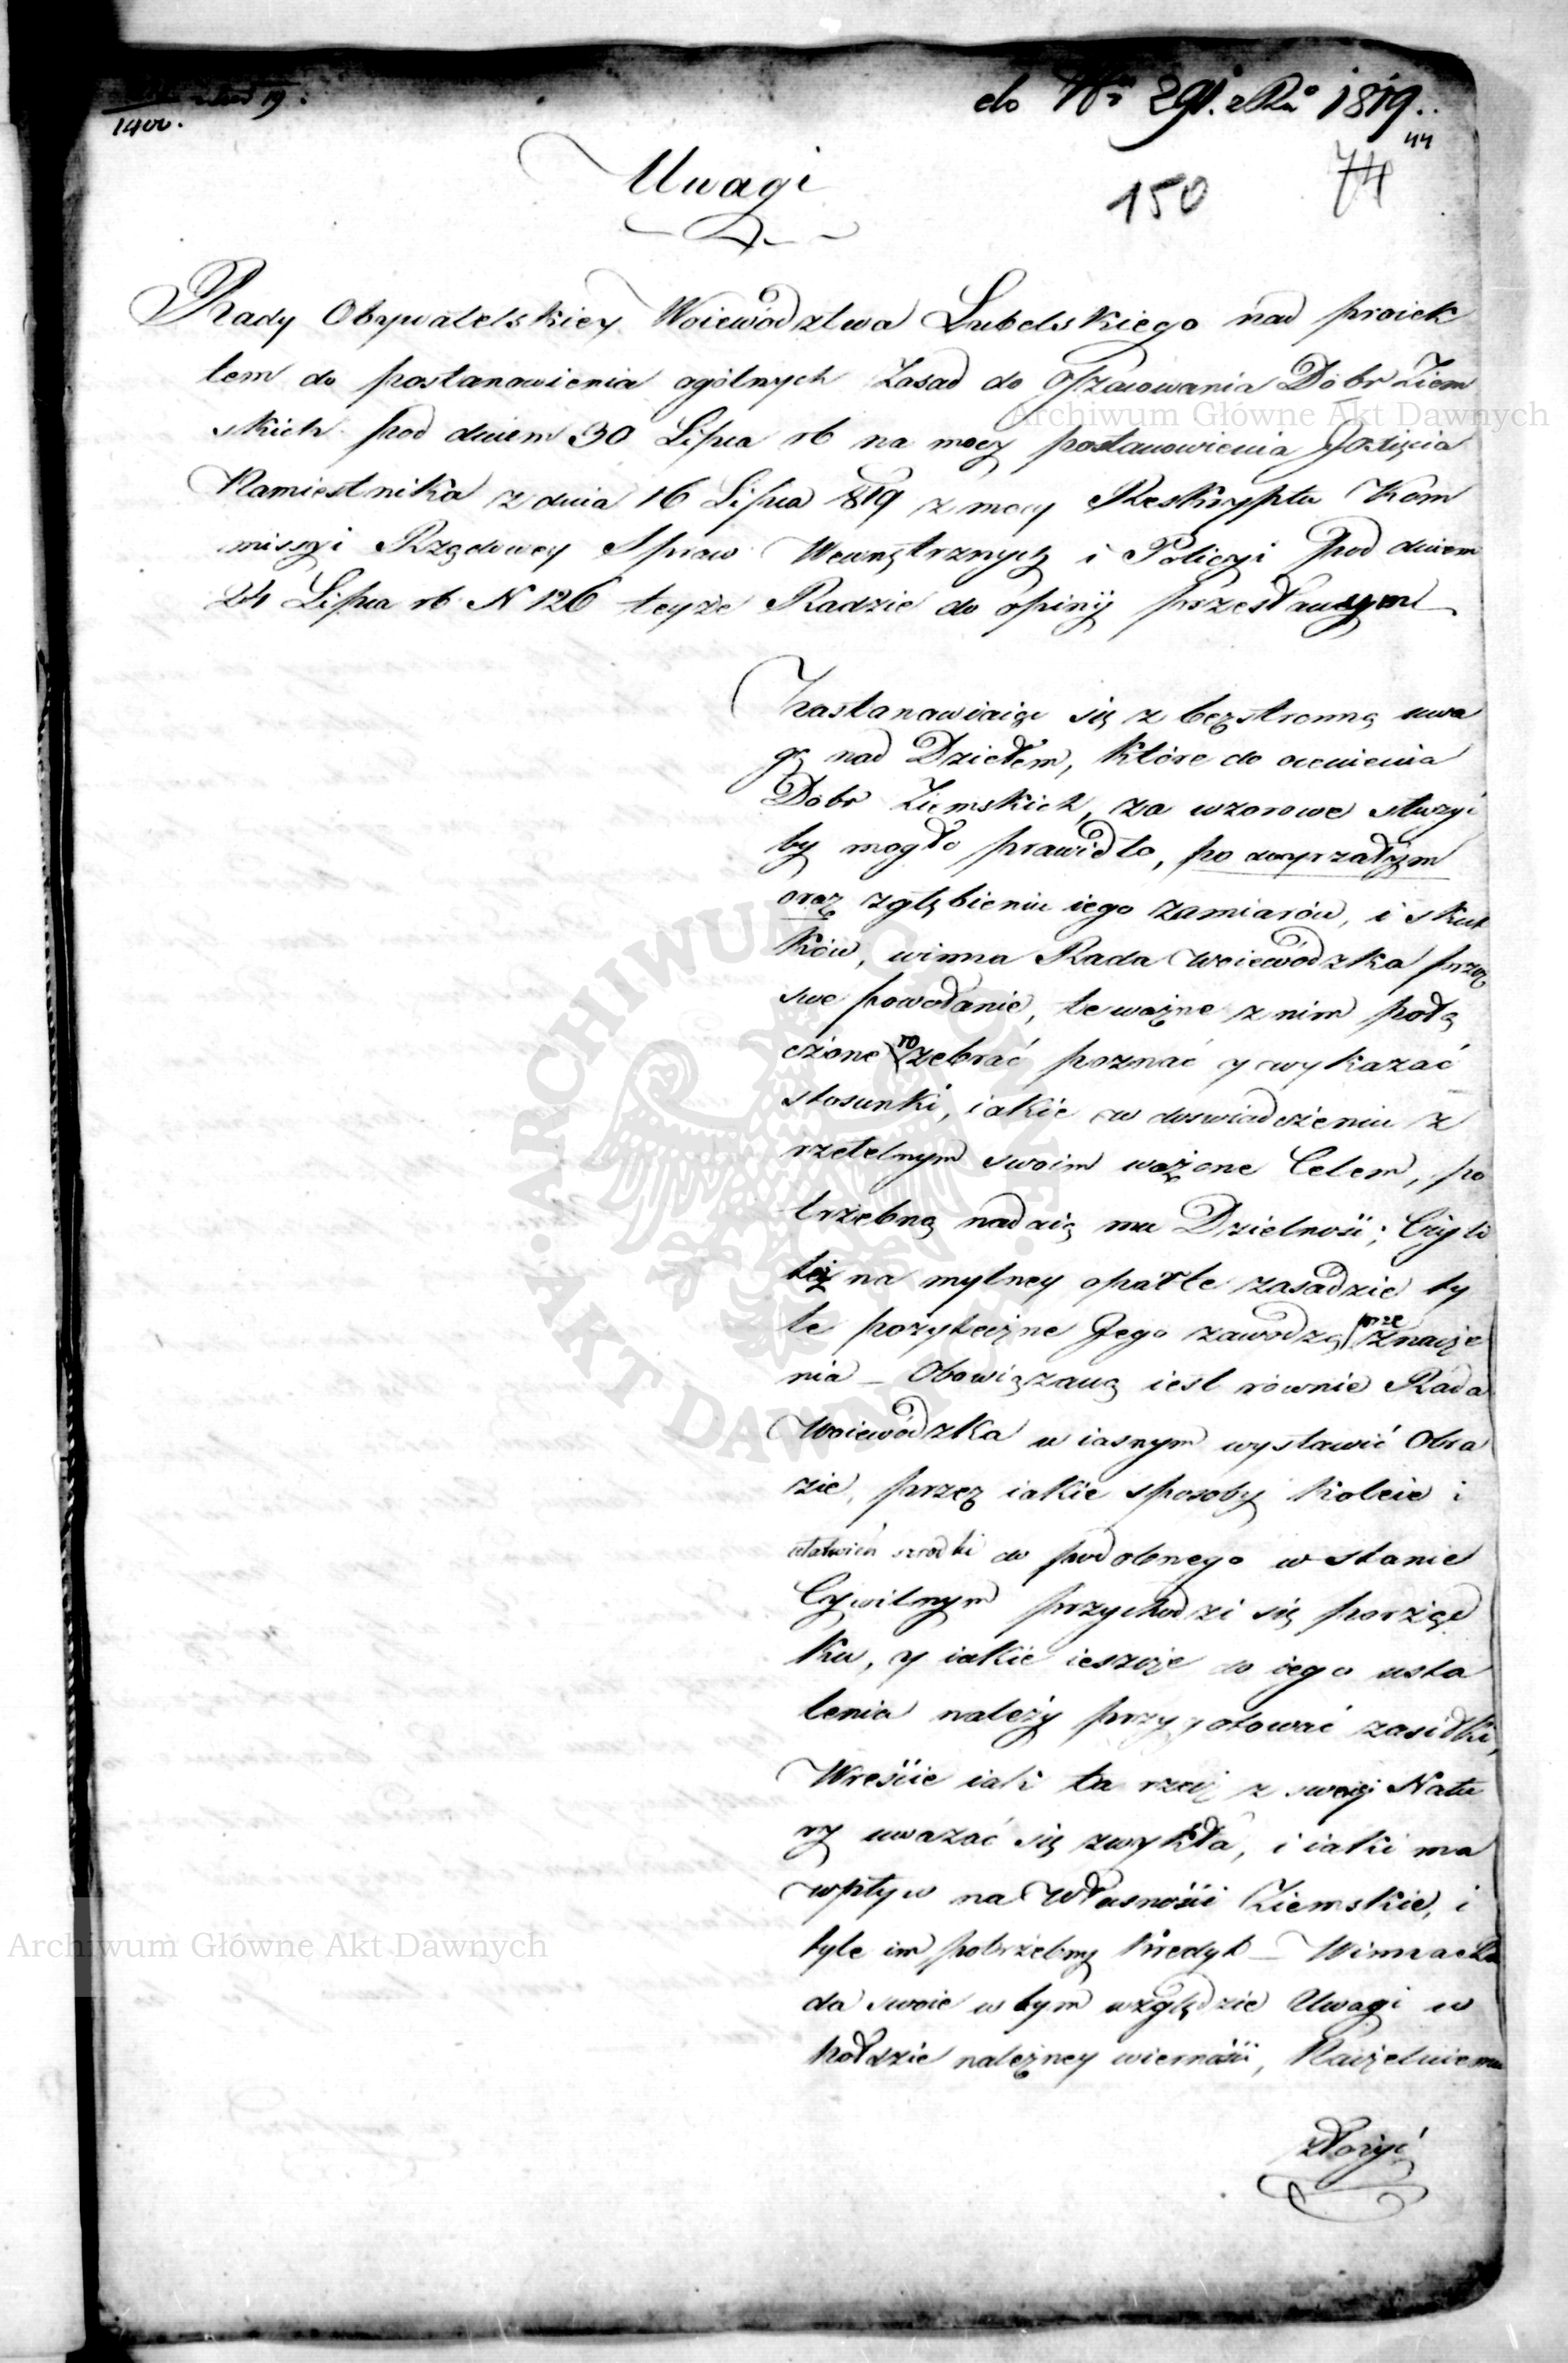 1400.
do Nr 291. z Ru 1819..
44
150 74
Uwagi
Rady Obywatelskiey Woiewództwa Lubelskiego nad proiek
tem do postanowienia ogólnych Zasad do Oszacowania Dóbr Ziem
skich pod dniem 30 Lipca rb na mocy postanowienia Xcia
Namiestnika z dnia 16 Lipca 1819 z mocy Reskryptu Kom
missyi Rządowey Spraw Wewnętrznych i Policyi pod dniem
24 Lipca rb N 126 teyże Radzie do opinij przesłanym
Zastanawiaiąc się z bezstronną uwa
gą nad Dziełem, które do ocenienia
Dóbr Ziemskich, za wzorowe służyć
by mogło prawidło, po doyrzałym
oraz zgłębieniu iego zamiarów, i skut
ków, winna Rada Woiewódzka przez
swe powołanie, te ważne z nim połą
czone rozebrać poznać y wykazać
stosunki, iakie w doswiadczeniu z
rzetelnym swoim ważone Celem, po
trzebną nadaią mu Dzielność; Czyli
też na mylney oparte zasadzie ty
le pożyteczne Jego zawodzą przeznacze
nia – Obowiązaną iest równie Rada
Woiewódzka w iasnym wystawić Obra
zie, przez iakie sposoby koleie i
szrodki do podobnego w stanie
Cywilnym przychodzi się porząd
ku, y iakie ieszcze do iego usta
lenia należy przygotować zasiłki,
Wreście iak ta rzecz z swey Natu
ry uważać się zwykła, i iaki ma
wpływ na Własności Ziemskie, i
tyle im potrzebny kredyt – Winna Ra
da swoie w tym względzie Uwagi w
hołdzie należney wierności, Naczelnemu
złożyć
Archiwum Główne Akt Dawnych
Archiwum Główne Akt Dawnych
ARCHIWUM GŁÓWNE AKT DAWNYCH